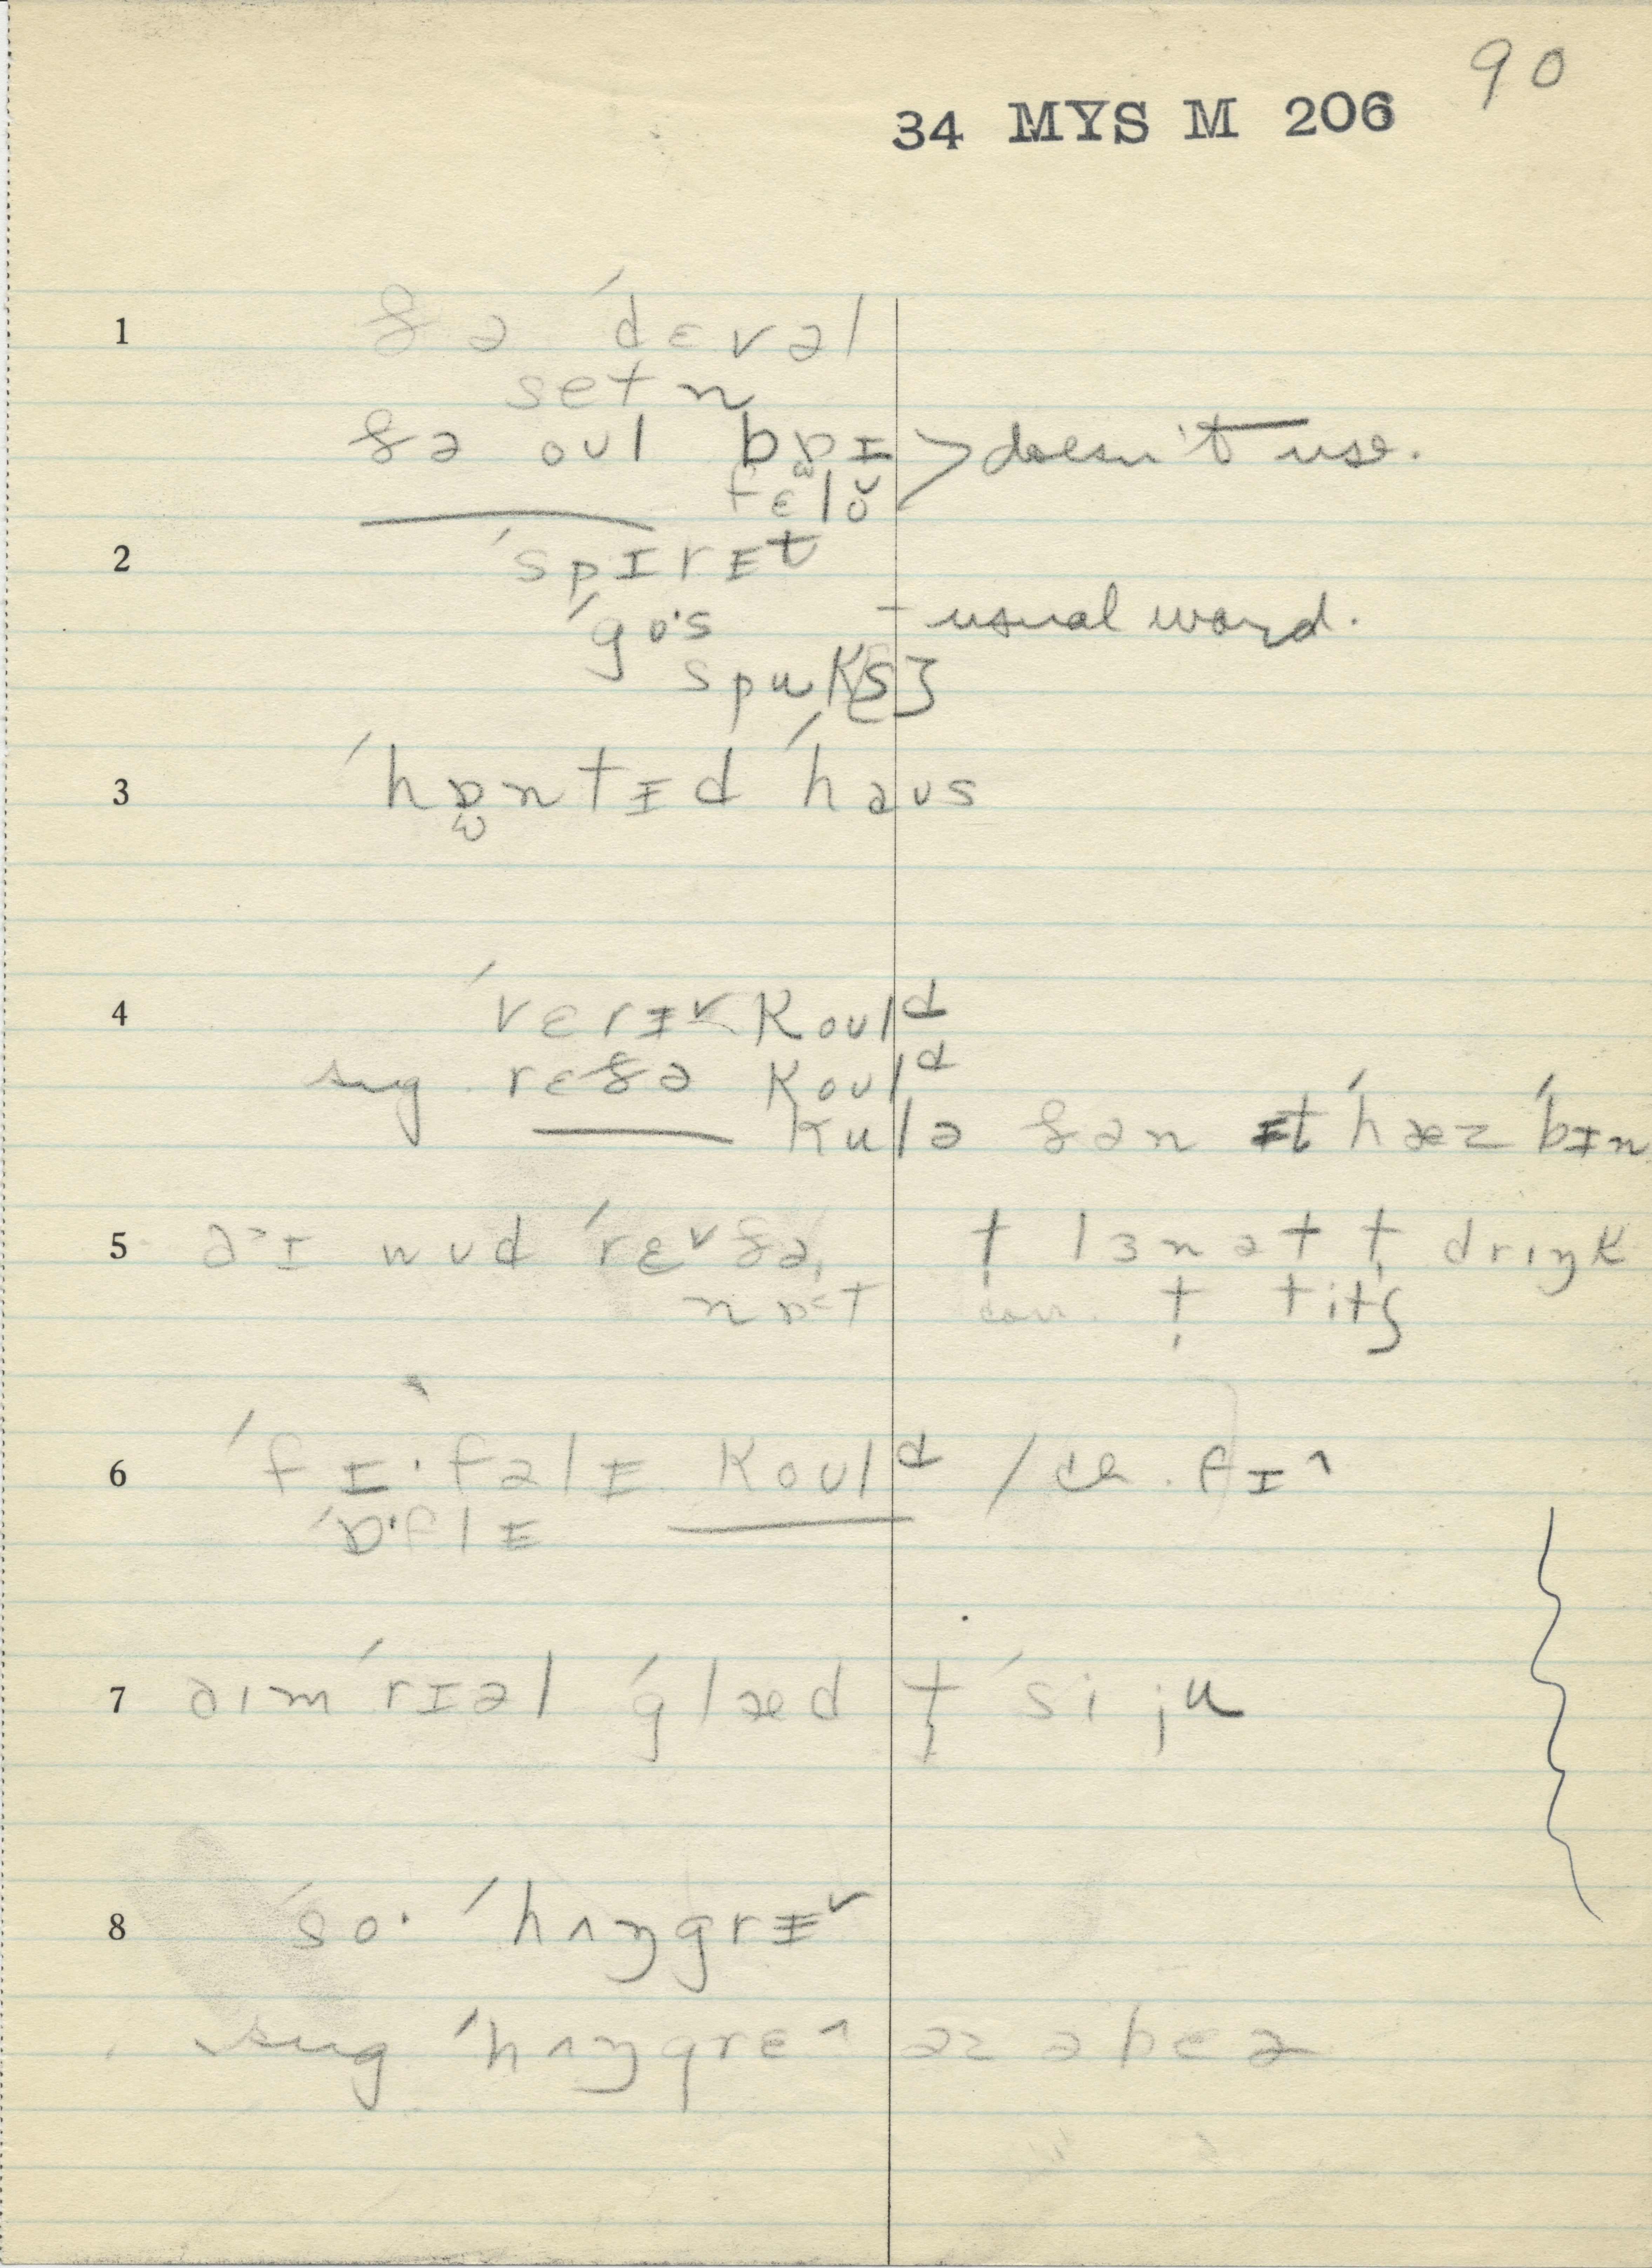 90
34 MYS M 206
1 ðə ˈdɛvəl
setn
ðə oʊl bɒɪ > doesn't use.
fɛlŏ
2 ˈspɪrɪt
ˈgo·s – usual word.
spuks
3 ˈhɒ̫ntɪd ˈhaʊs
4 ˈvɛrɪ˅ koʊld
sug. rɛðə koʊld
kulə ðən ɪt ˈhæz ˈbɪn
5 əˑɪ wʊd ˈrɛ˅ðə, t̩ lɜnət t̩ drɪŋk
nɒ˂t t̩ titʃ
6 ˈfɪ·fəlɪ koʊld / fɪ˄
ˈɒ·flɪ
7 aɪm ˈrɪəl ˈglæd t̩ ˈsi ju
8 ˈso· ˈhʌŋgrɪ˅
sug ˈhʌŋgrɛ˄ əz ə bɛə